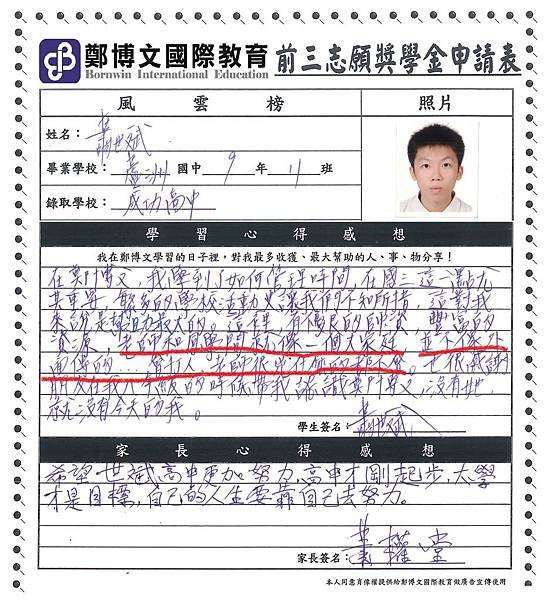 鄭博文國際教育 前三志願獎學金申請表
Bornwin International Education
風雲榜 照片
姓名：世斌
畢業學校：蘆洲國中 9 年 11 班
錄取學校：成功高中
學習心得感想
我在鄭博文學習的日子裡，對我最多收獲、最大幫助的人、事、物分享！
在鄭博文，我學到了如何管理時間，在國三這一點尤
其重要，繁多的學校活動火讓我們不知所措，這對我
來說是幫助最大的。這裡，有優良的師資，豐富的
資源，老師和同學間就像一個大家庭，並不像外
面傳的，老師很。十很感謝
朋友在我的時候帶我認識鄭博文，沒有他，
就沒有今天的我。
學生簽名：世斌
家長心得感想
希望世斌高中更加努力，高中才剛起步，大學
才是目標，自己的人生要靠自己去努力。
家長簽名：權堂
本人同意肖像權提供給鄭博文國際教育做廣告宣傳使用